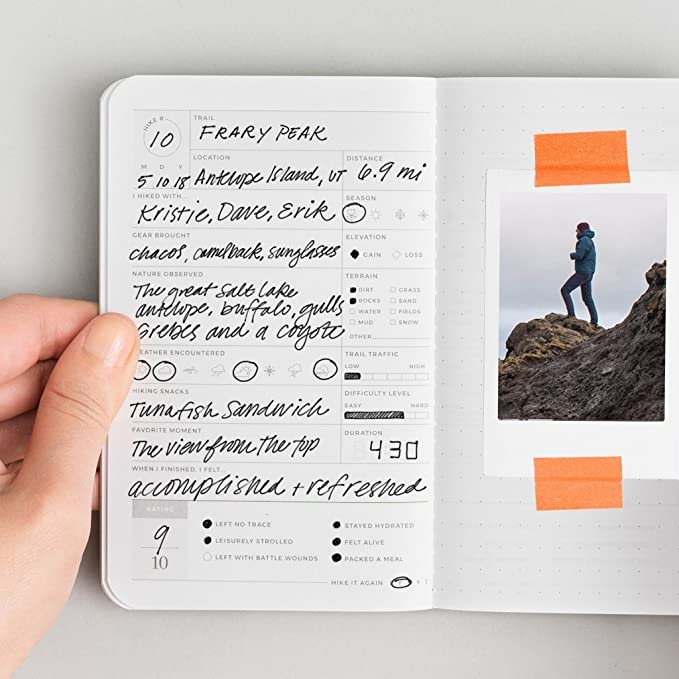 HIKE #
10
TRAIL
FRARY PEAK
M D Y
5 10 18
LOCATION
Antelope Island, UT
DISTANCE
6.9 mi
I HIKED WITH...
Kristie, Dave, Erik
SEASON
GEAR BROUGHT
chacos, camelback, sunglasses
ELEVATION
GAIN LOSS
NATURE OBSERVED
The great Salt Lake
antelope, buffalo, gulls
Grebes and a coyote
TERRAIN
DIRT GRASS
ROCKS SAND
WATER FIELDS
MUD SNOW
OTHER
WEATHER ENCOUNTERED
TRAIL TRAFFIC
LOW HIGH
HIKING SNACKS
Tunafish Sandwich
DIFFICULTY LEVEL
EASY HARD
FAVORITE MOMENT
The view from the top
DURATION
4:30
WHEN I FINISHED, I FELT...
accomplished + refreshed
RATING
9
10
LEFT NO TRACE
LEISURELY STROLLED
LEFT WITH BATTLE WOUNDS
STAYED HYDRATED
FELT ALIVE
PACKED A MEAL
HIKE IT AGAIN